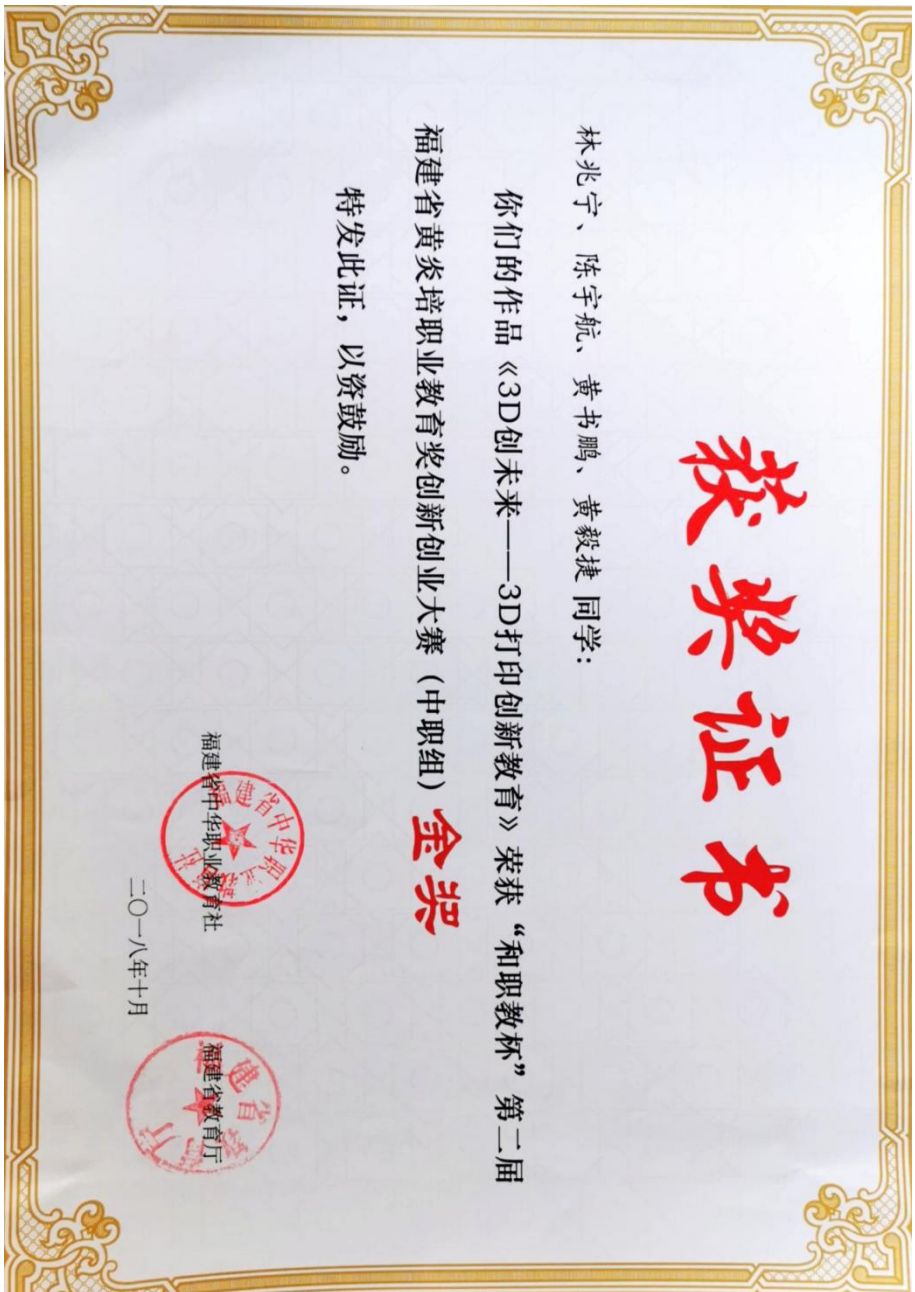 获奖证书
林兆宁、陈宇航、黄书鹏、黄毅捷 同学：
你们的作品《3D创未来——3D打印创新教育》荣获“和职教杯”第二届
福建省黄炎培职业教育奖创新创业大赛（中职组）金奖
特发此证，以资鼓励。
福建省中华职业教育社 福建省教育厅
二〇一八年十月